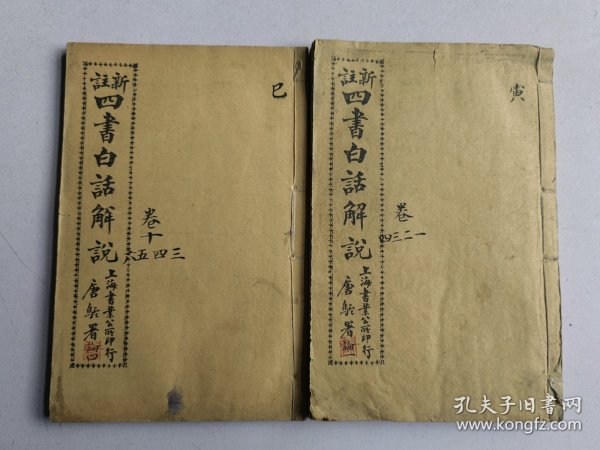 新註
四書白話解說
上海書業公所印行
唐駝署
巳
卷十
三四五六
新註
四書白話解說
上海書業公所印行
唐駝署
寅
卷
一二三四
孔夫子旧书网
www.kongfz.com